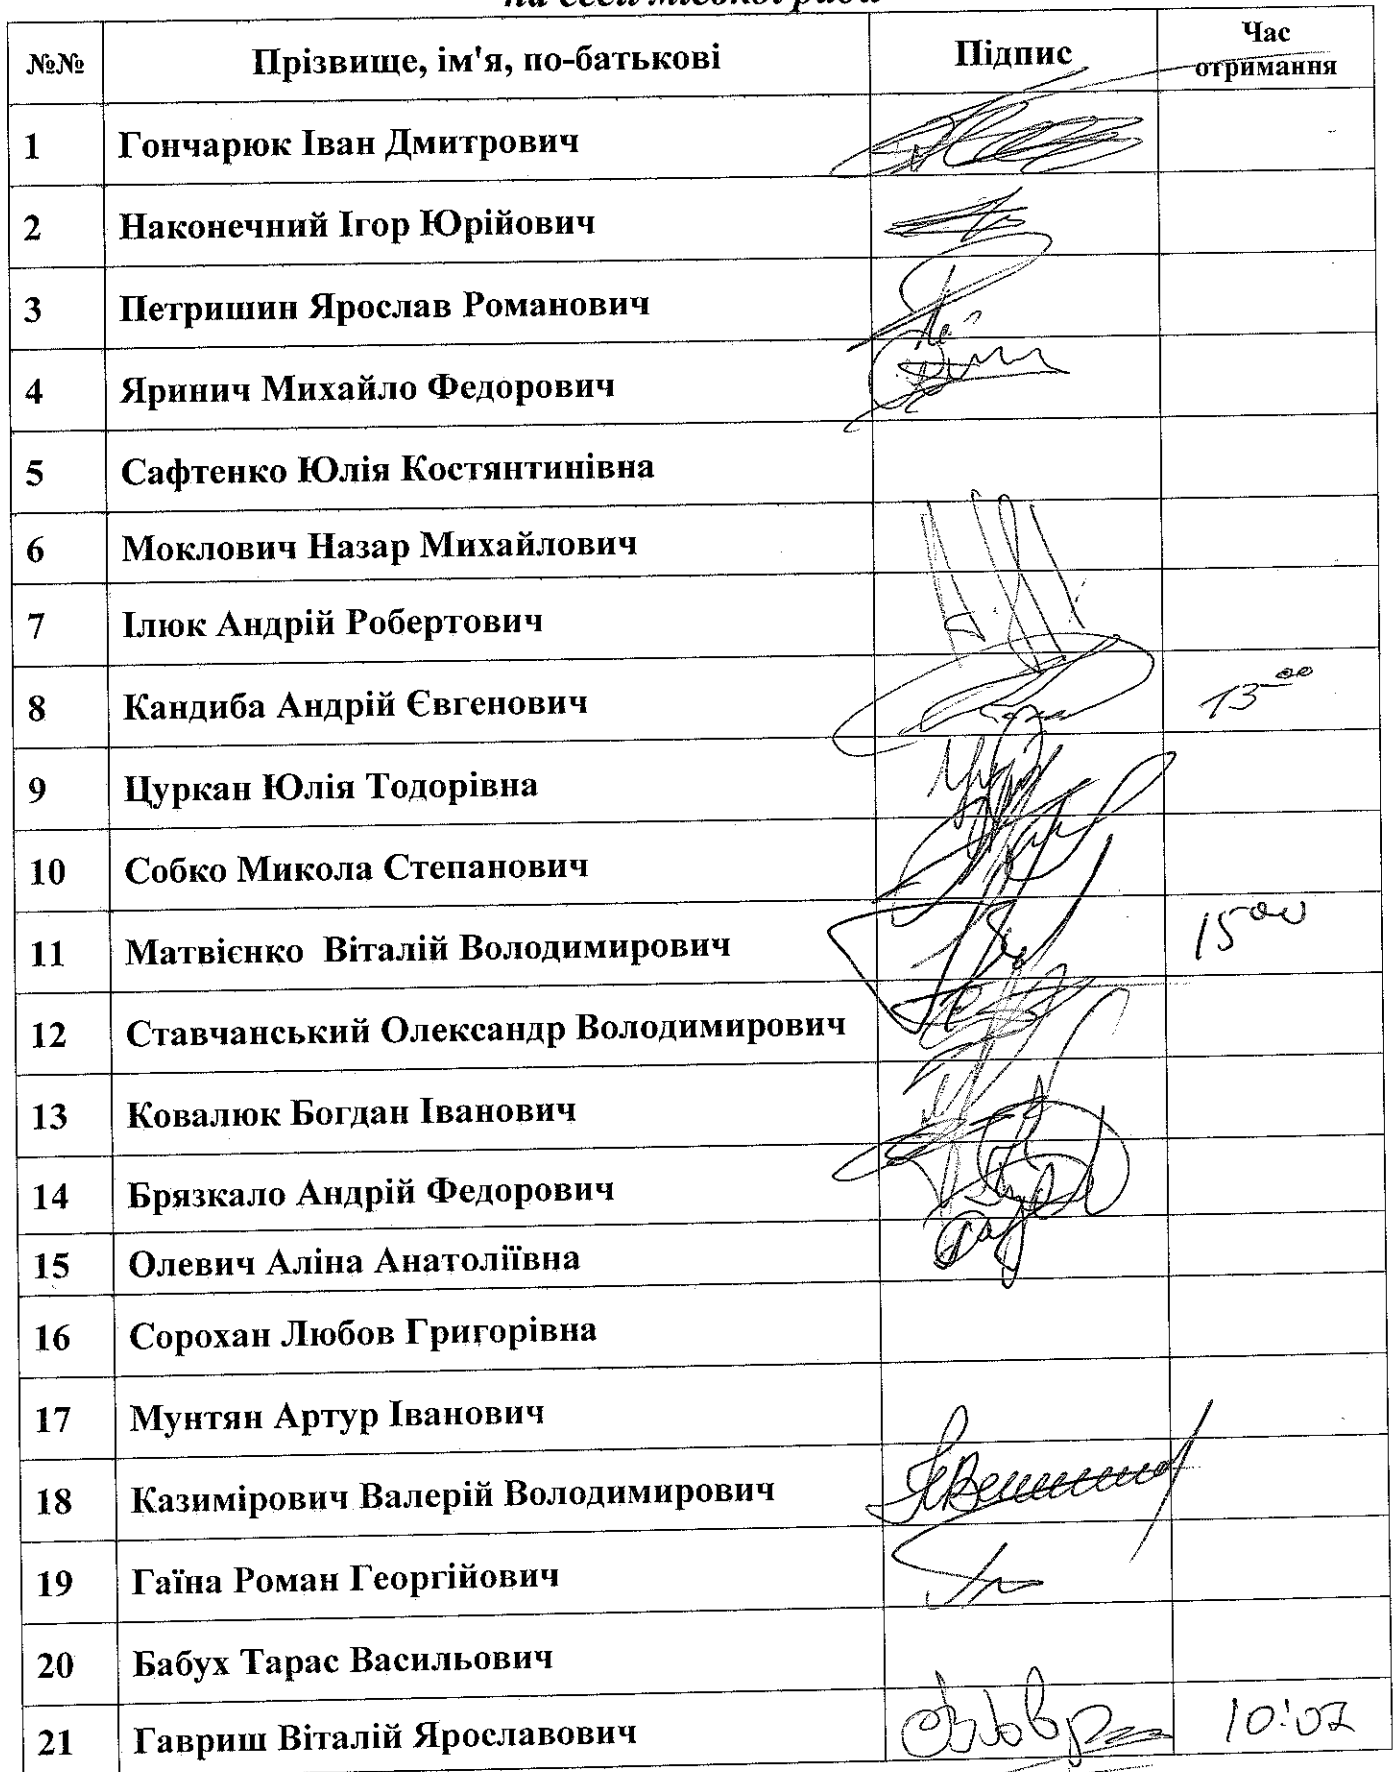 на сесії міської ради
№№ Прізвище, ім'я, по-батькові Підпис Час отримання
1 Гончарюк Іван Дмитрович
2 Наконечний Ігор Юрійович
3 Петришин Ярослав Романович
4 Яринич Михайло Федорович
5 Сафтенко Юлія Костянтинівна
6 Моклович Назар Михайлович
7 Ілюк Андрій Робертович
8 Кандиба Андрій Євгенович 13 00
9 Цуркан Юлія Тодорівна
10 Собко Микола Степанович
11 Матвієнко Віталій Володимирович 15 00
12 Ставчанський Олександр Володимирович
13 Ковалюк Богдан Іванович
14 Брязкало Андрій Федорович
15 Олевич Аліна Анатоліївна
16 Сорохан Любов Григорівна
17 Мунтян Артур Іванович
18 Казимірович Валерій Володимирович
19 Гаїна Роман Георгійович
20 Бабух Тарас Васильович
21 Гавриш Віталій Ярославович 10:07